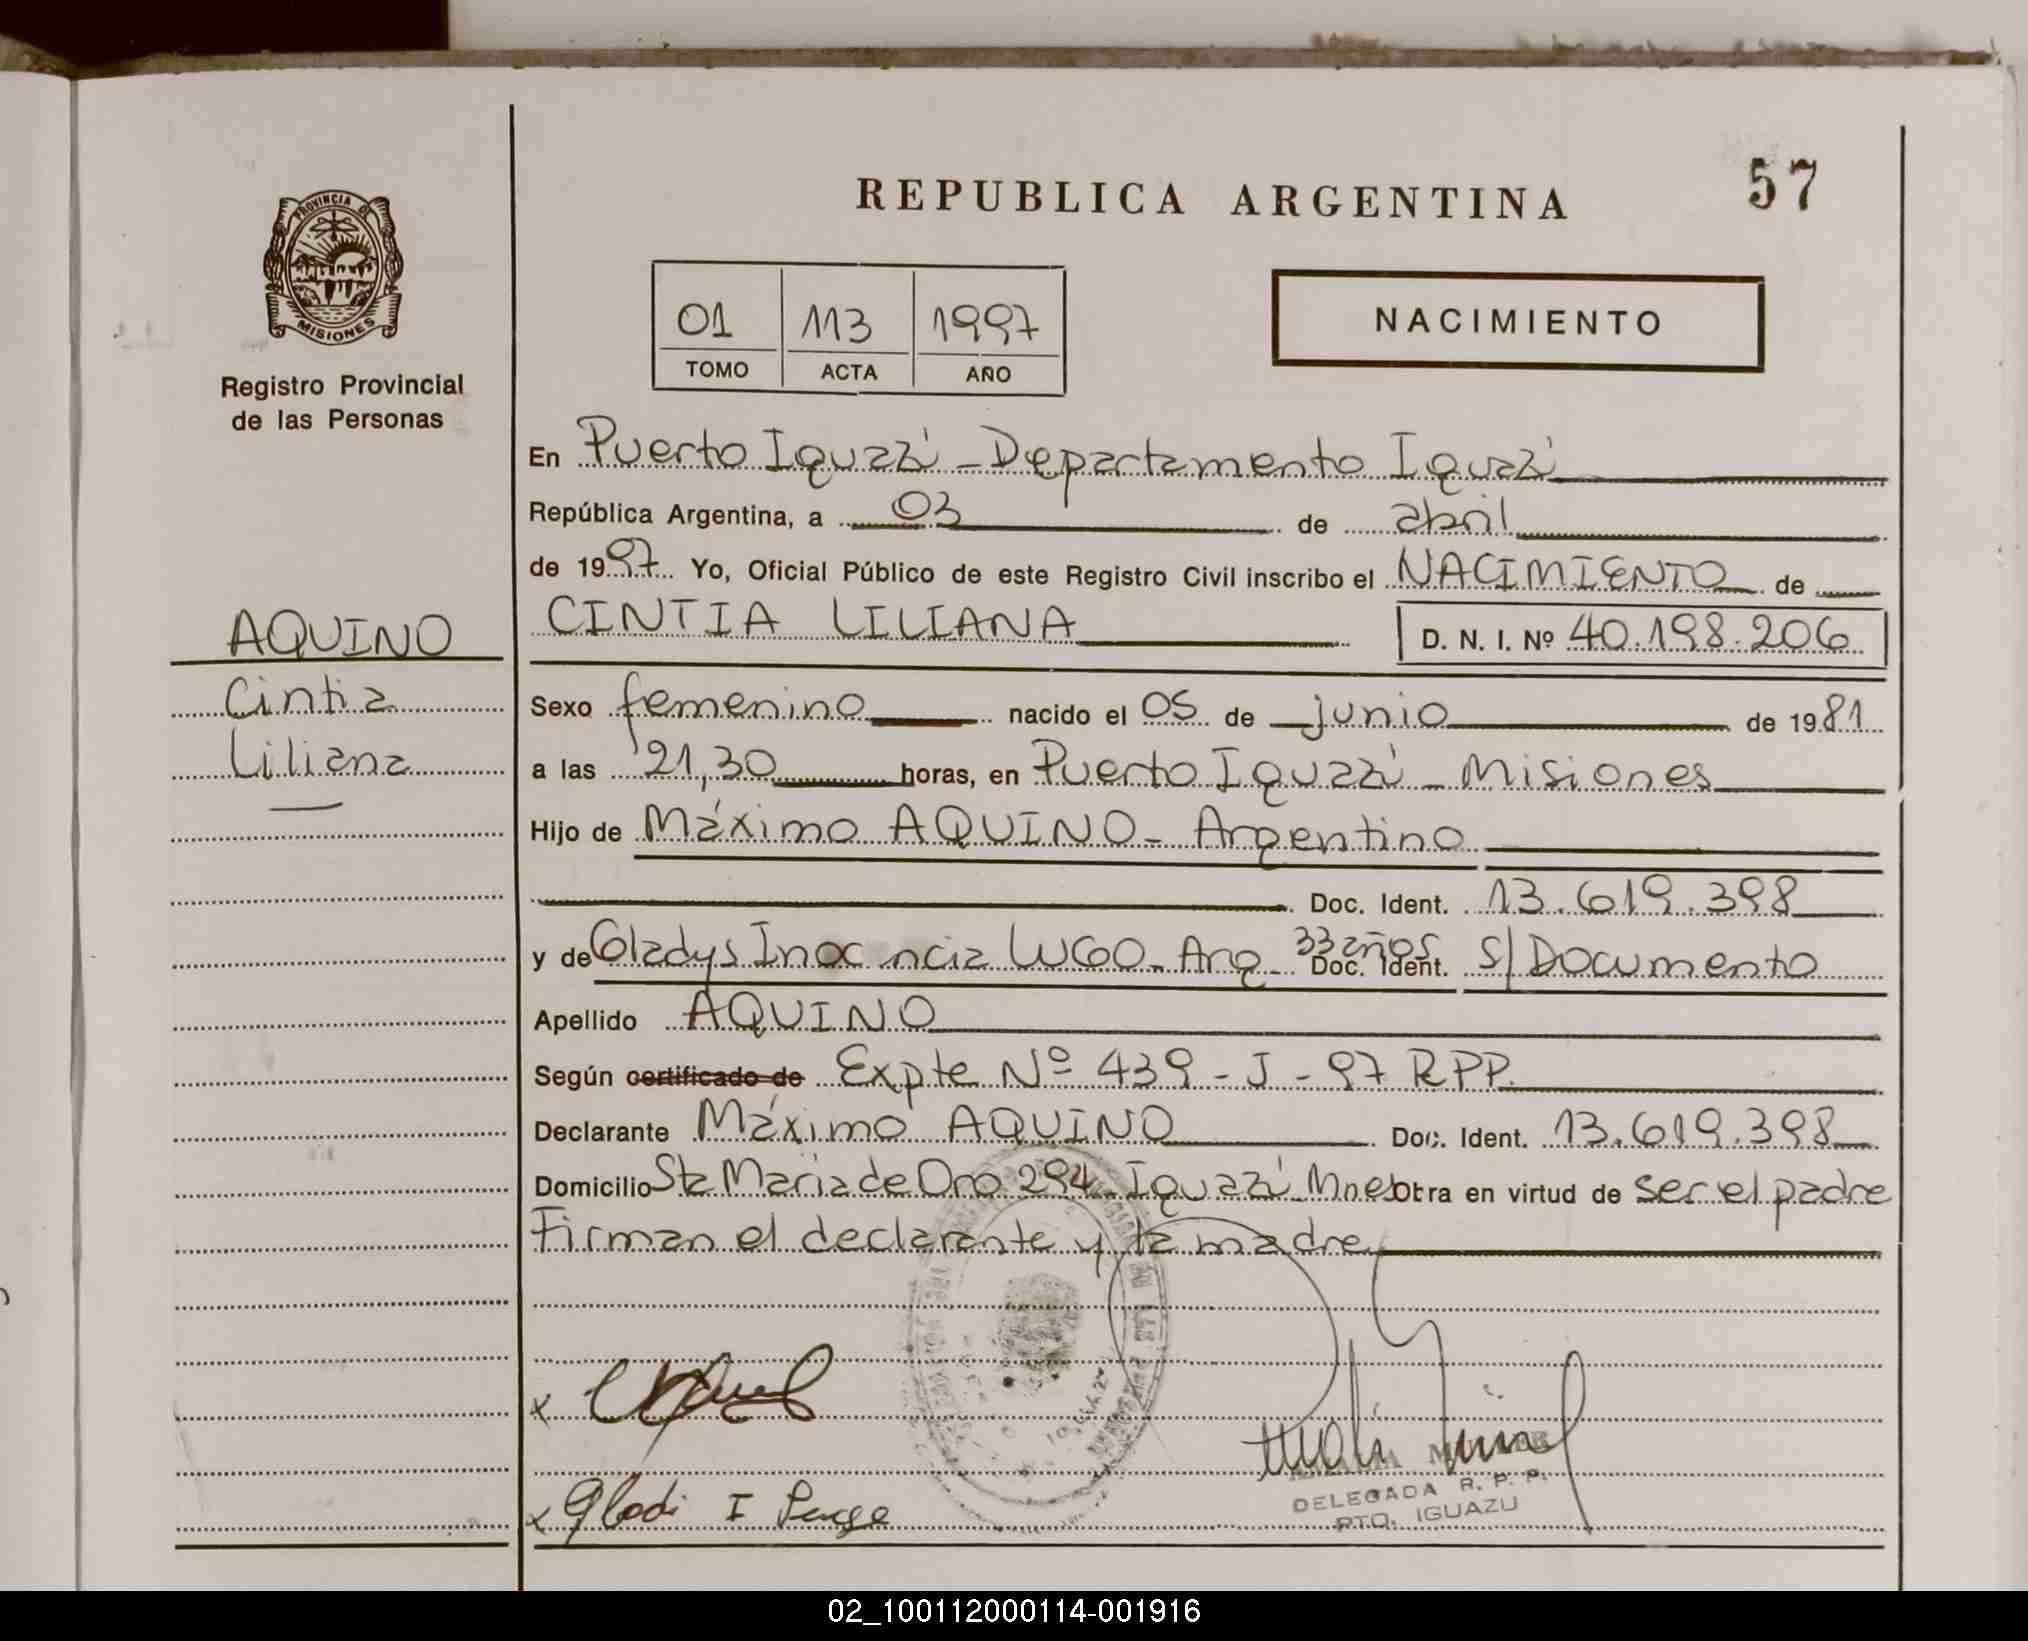 57
REPUBLICA ARGENTINA
PROVINCIA DE
MISIONES
Registro Provincial
de las Personas
01 113 1997
TOMO ACTA AÑO
NACIMIENTO
En Puerto Iguazú - Departamento Iguazú
República Argentina, a 03 de abril
de 1997 Yo, Oficial Público de este Registro Civil inscribo el NACIMIENTO de
AQUINO
CINTIA LILIANA D. N. I. Nº 40.198.206
Cintia
Liliana
Sexo femenino nacido el 05 de junio de 1981
a las 21,30 horas, en Puerto Iguazú - Misiones
Hijo de Máximo AQUINO - Argentino
Doc. Ident. 13.619.398
y de Gladys Inocencia LUGO - Arg - 33 años Doc. Ident. S/Documento
Apellido AQUINO
Según certificado de Expte Nº 439 - J - 97 RPP.
Declarante Máximo AQUINO Doc. Ident. 13.619.398
Domicilio Sta Maria de Oro 294 - Iguazú Mnes Obra en virtud de ser el padre
Firman el declarante y la madre
x
x Gladi I
DELEGADA R. P. P.
PTO. IGUAZU
02_100112000114-001916